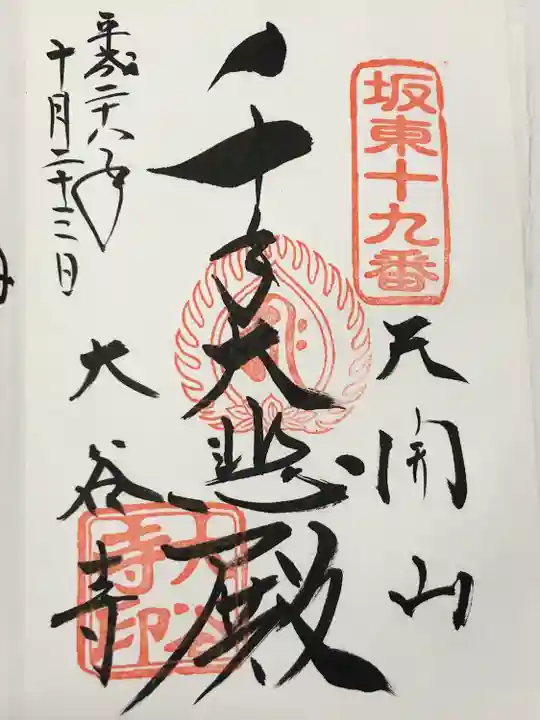 坂東十九番
天開山
千手大悲殿
大谷寺
大谷寺印
平成二十八年
十月二十三日